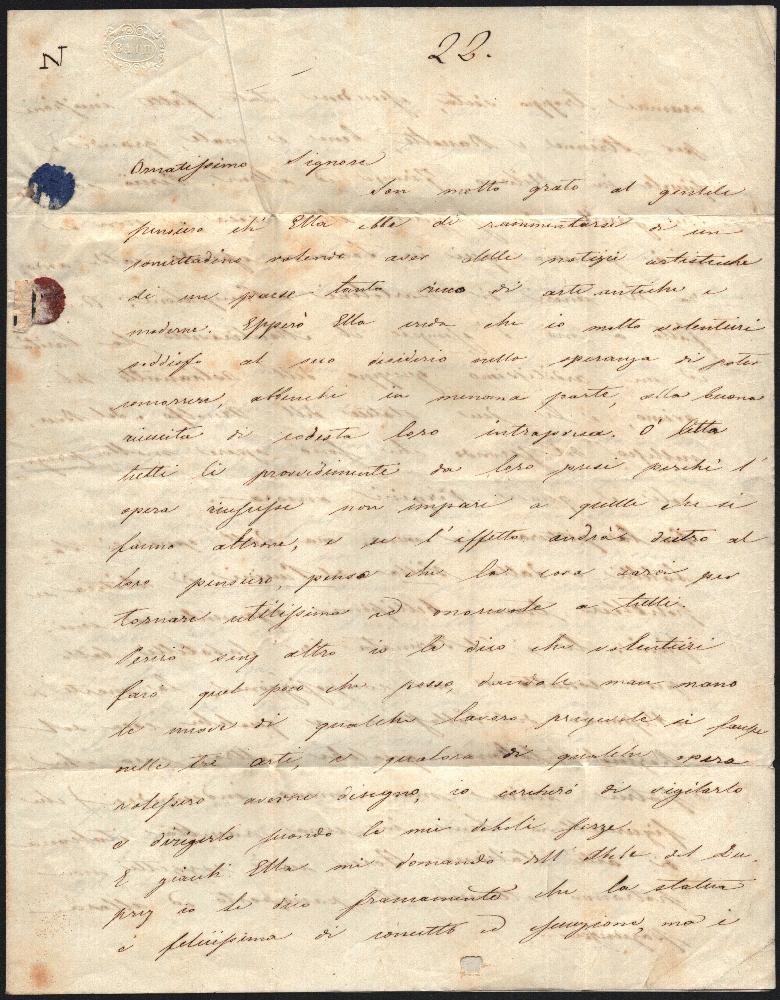 N
BATH
22.
Ornatissimo Signore
Son molto grato al gentile
pensiero ch' Ella ebbe di rammentarsi di un
concittadino volendo aver delle notizie artistiche
di un paese tanto ricco di arti antiche e
moderne. Epperò Ella creda che io molto volentieri
soddisfo al suo desiderio nella speranza di poter
concorrere, abbenchè in menoma parte, alla buona
riuscita di codesta loro intrapresa. O' letto
tutti li provvedimenti da loro presi perchè l'
opera riuscisse non impari a quelle che si
fanno altrove, e se l'effetto andrà dietro al
loro pensiero, penso che la cosa sarà per
tornare utilissima ed onorevole a tutti.
Perciò senz' altro io le dico che volentieri
farò quel poco che posso, dandole man mano
le nuove di qualche lavoro pregevole si facesse
nelle tre arti, e qualora di qualche opera
volessero averne disegno, io cercherò di vigilarlo
e dirigerlo secondo le mie deboli forze.
E giacchè Ella mi domanda dell' Abele del Du-
prez io le dico francamente che la statua
è felicissima di concetto ed esecuzione, ma i